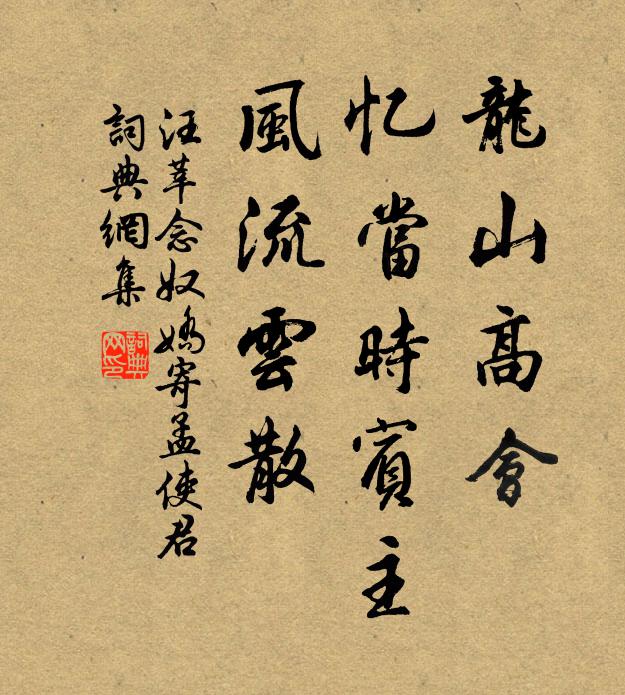 龍山高會
忆當時賓主
風流雲散
汪莘念奴嬌寄孟使君
詞典網集
詞典網印